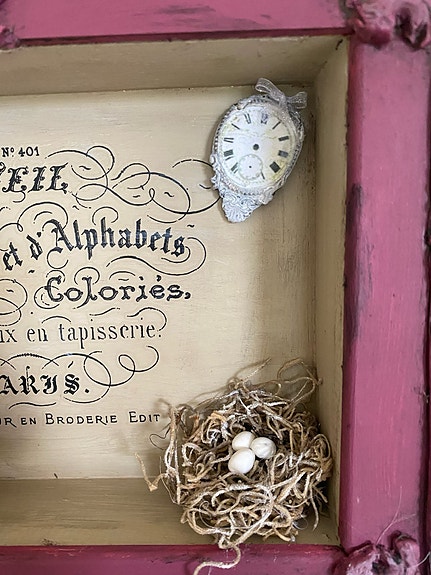 Nº 401
EIL
et d'Alphabets
Coloriés,
ix en tapisserie.
ARIS.
UR EN BRODERIE EDIT